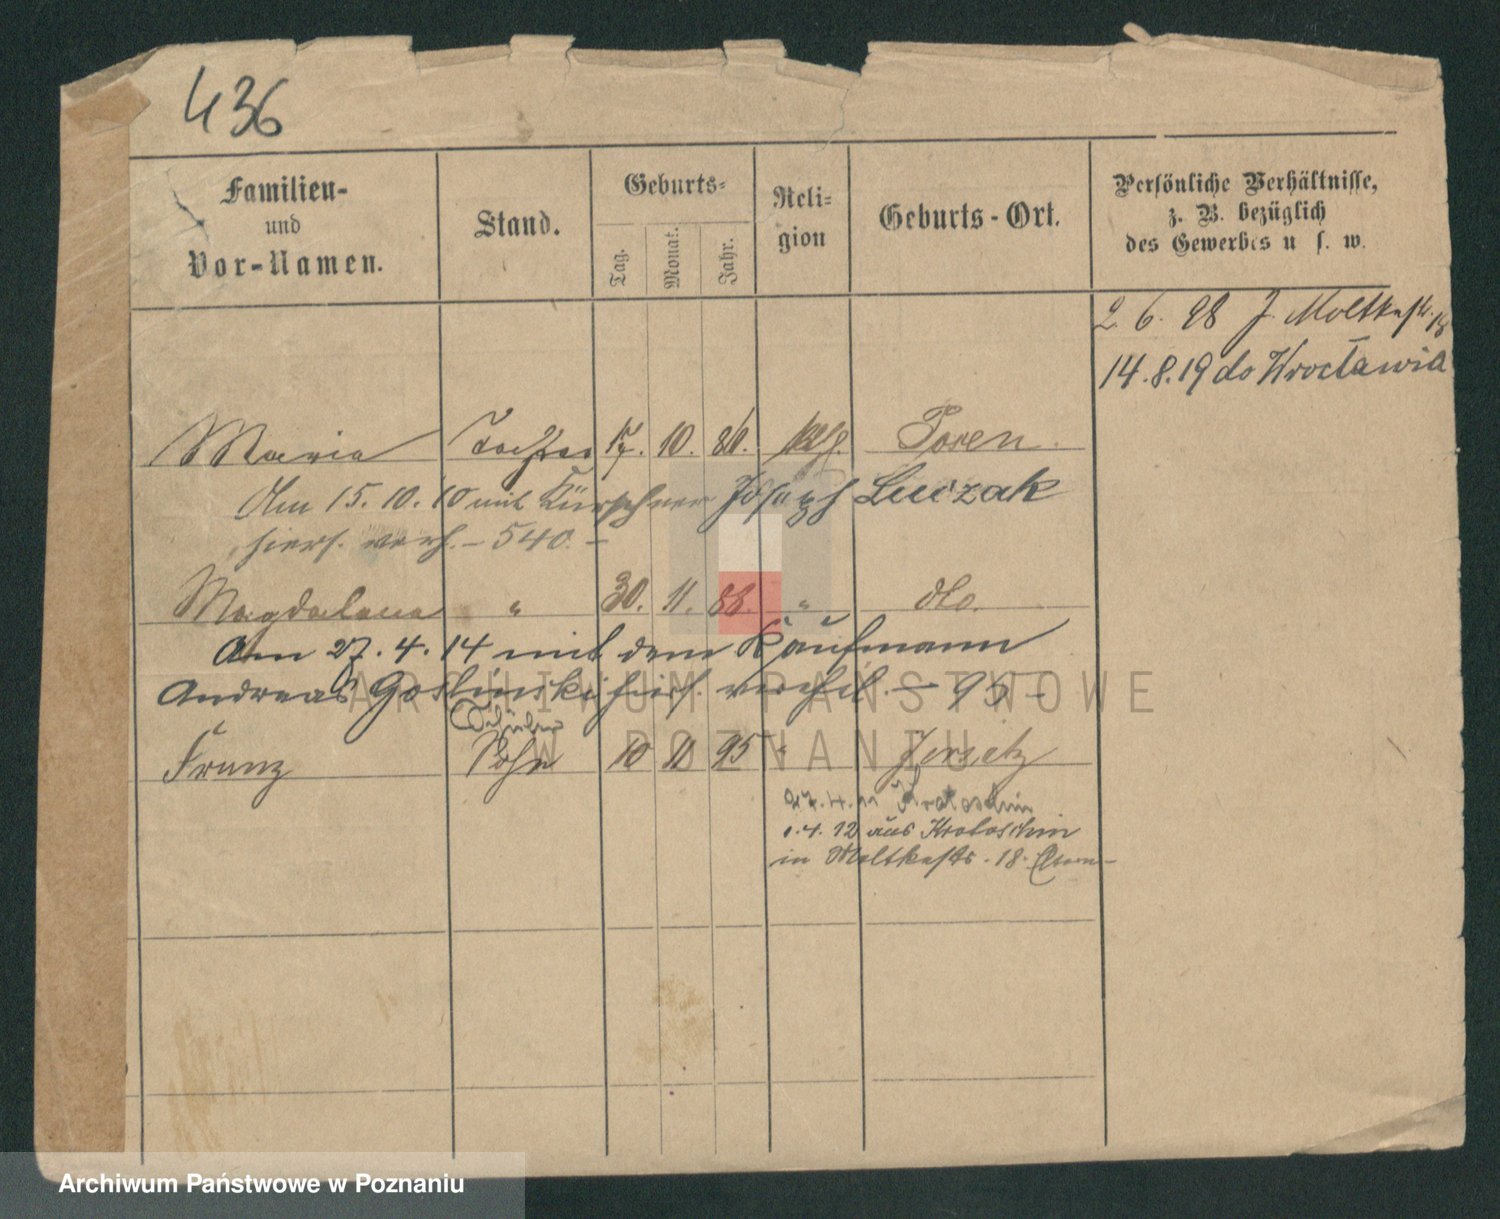 436
Familien- und Vor-Namen.
Stand.
Geburts-
Tag. Monat. Jahr.
Reli-gion
Geburts-Ort.
Persönliche Verhältnisse,
z. B. bezüglich
des Gewerbes u s. w.
2. 6. 98 J. Moltkestr. 18
14.8.19 do Wrocławia
Maria Tochter 17. 10. 86. kath. Posen.
Am 15. 10. 10 mit Kürschner Joseph Luczak
hiers. verh. – 540. –
Magdalena " 30. 11. 88. " dto.
Am 27. 4. 14 mit dem Kaufmann
Andreas Goslinski hiers. verehel. – 95 –
Schüler
Franz Sohn 10 11 95 " Jersitz
27.4.11 Krotoschin
1.4.12 aus Krotoschin
in Moltkestr. 18
ARCHIWUM PAŃSTWOWE
W POZNANIU
Archiwum Państwowe w Poznaniu